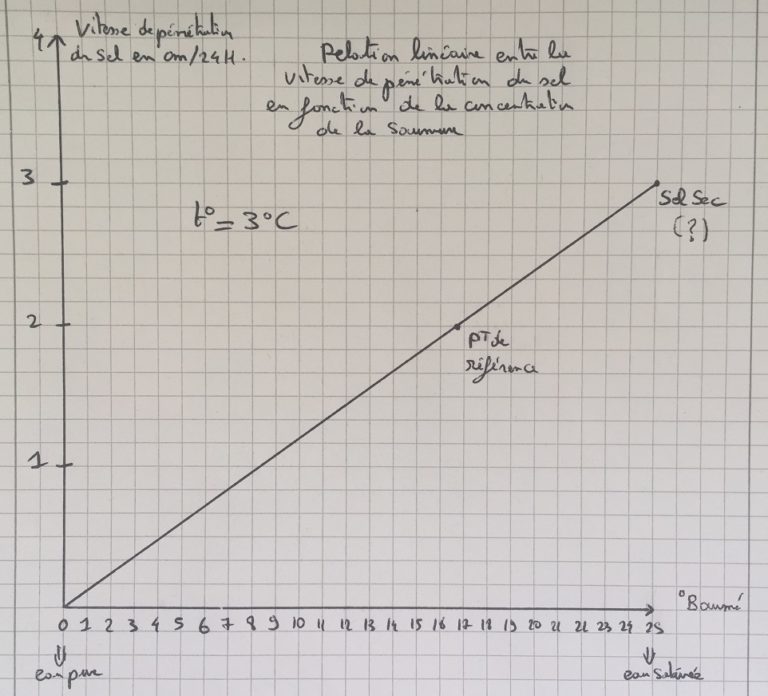 4
Vitesse de pénétration
du Sel en cm/24H.
Relation linéaire entre la
vitesse de pénétration du sel
en fonction de la concentration
de la Saumure
3
t° = 3°C
Sel Sec
(?)
2
PT de
référence
1
°Baumé
0 1 2 3 4 5 6 7 8 9 10 11 12 13 14 15 16 17 18 19 20 21 22 23 24 25
eau pure
eau Saturée